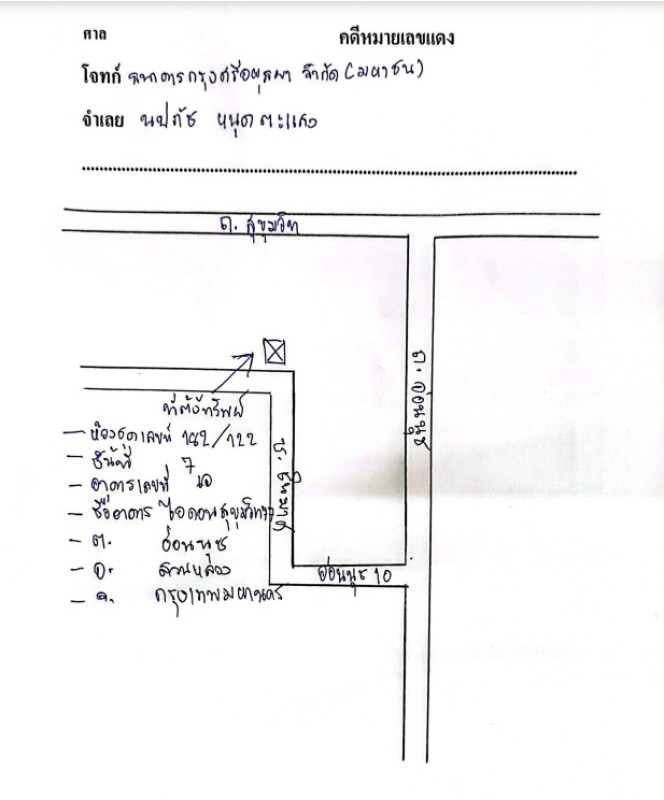 ศาล
คดีหมายเลขแดง
โจทก์ ธนาคารกรุงศรีอยุธยา จำกัด (มหาชน)
จำเลย
ถ. สุขุมวิท
ถ. อ่อนนุช
ที่ตั้งทรัพย์
– ห้องชุดเลขที่ 142/122
– ชั้นที่ 7
– อาคารเลขที่
– ชื่ออาคาร ไอดีโอ สุขุมวิท
– ต. อ่อนนุช
– อ. สวนหลวง
– จ. กรุงเทพมหานคร
อ่อนนุช 10